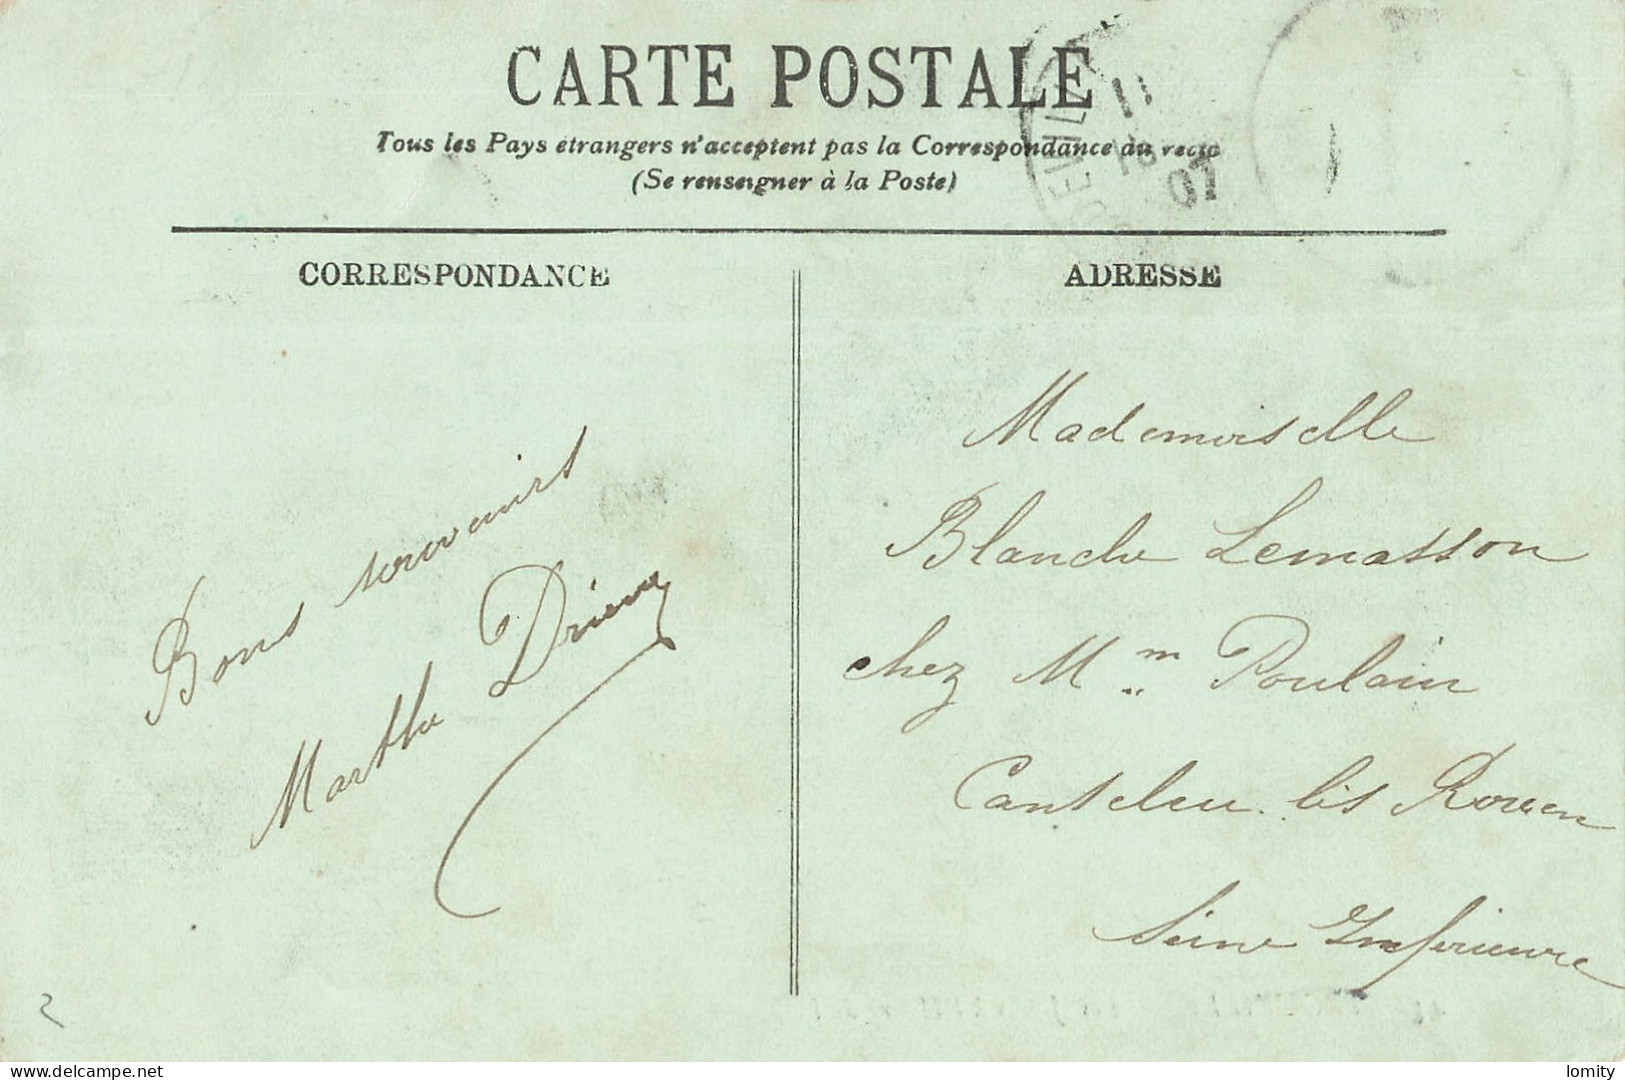 CARTE POSTALE
Tous les Pays étrangers n'acceptent pas la Correspondance au recto
(Se renseigner à la Poste)
07
CORRESPONDANCE
ADRESSE
Bons souvenirs
Marthe
Mademoiselle
Blanche Lemasson
chez Mm Poulain
Canteleu lès Rouen
Seine Inférieure
2
www.delcampe.net
lomity